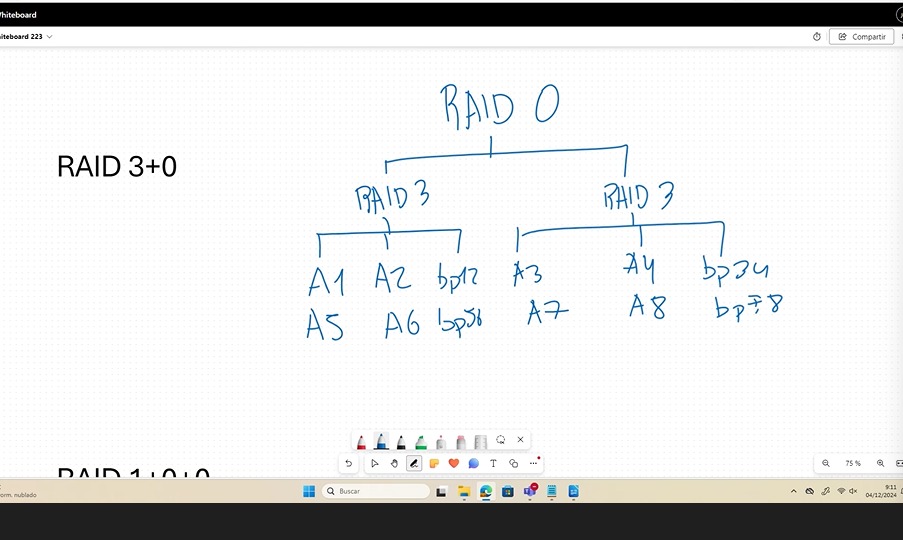 Whiteboard
iteboard 223
Compartir
RAID 0
RAID 3+0
RAID 3 RAID 3
A1 A2 bp12 A3 A4 bp34
A5 A6 bp56 A7 A8 bp7,8
RAID 1+0+0
75 %
Buscar
orm. nublado
9:11
04/12/2024